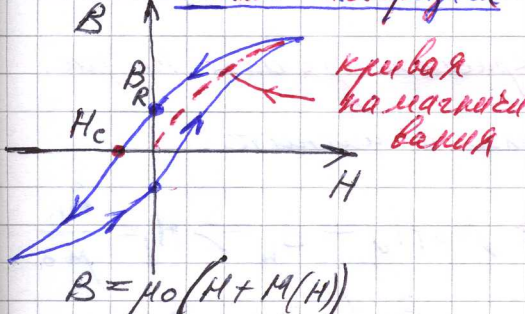 B
B_R
кривая
намагничи
вания
Hc
H
B = μ₀(H + M(H))